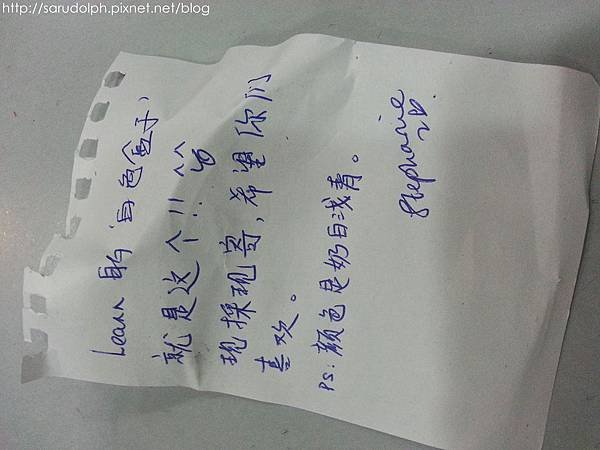 http://sarudolph.pixnet.net/blog
Leann 白色盒子
就是这个!! ^^
现採现寄,希望你们
喜欢。
PS: 颜色是奶白浅青。
Stephanie